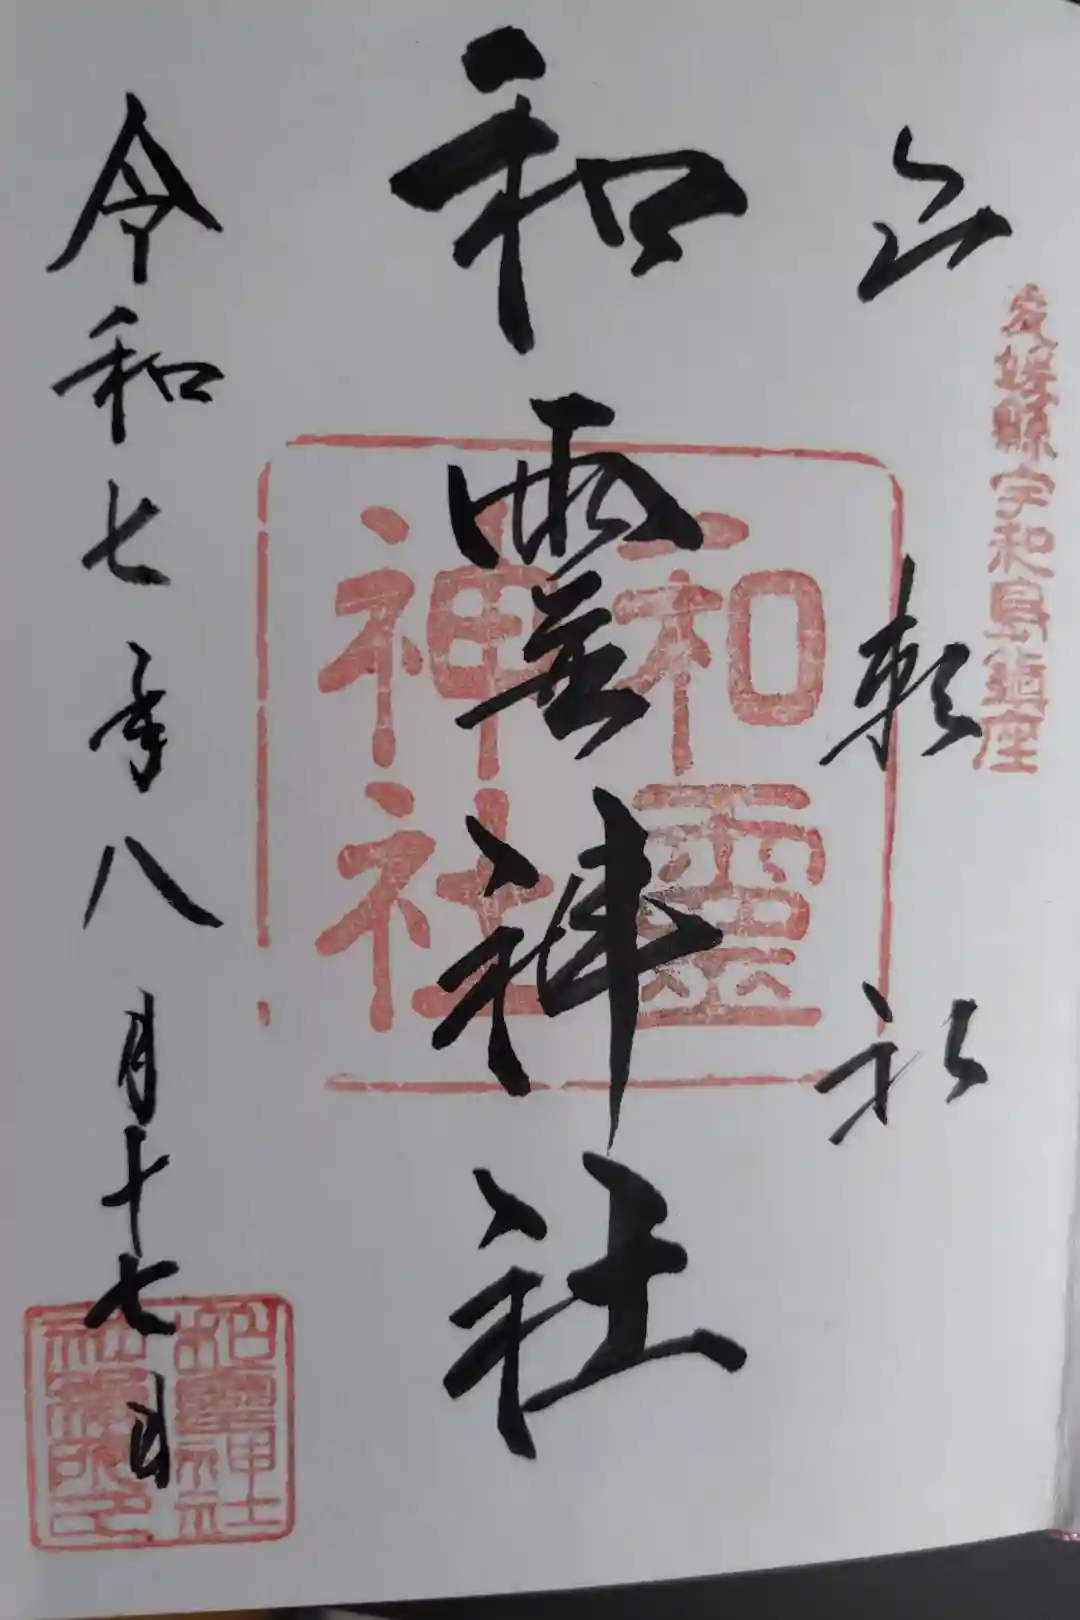 愛媛縣宇和島鎮座
頼
和霊神社
和靈神社
令和七年八月十七日
和靈神社
社務所印